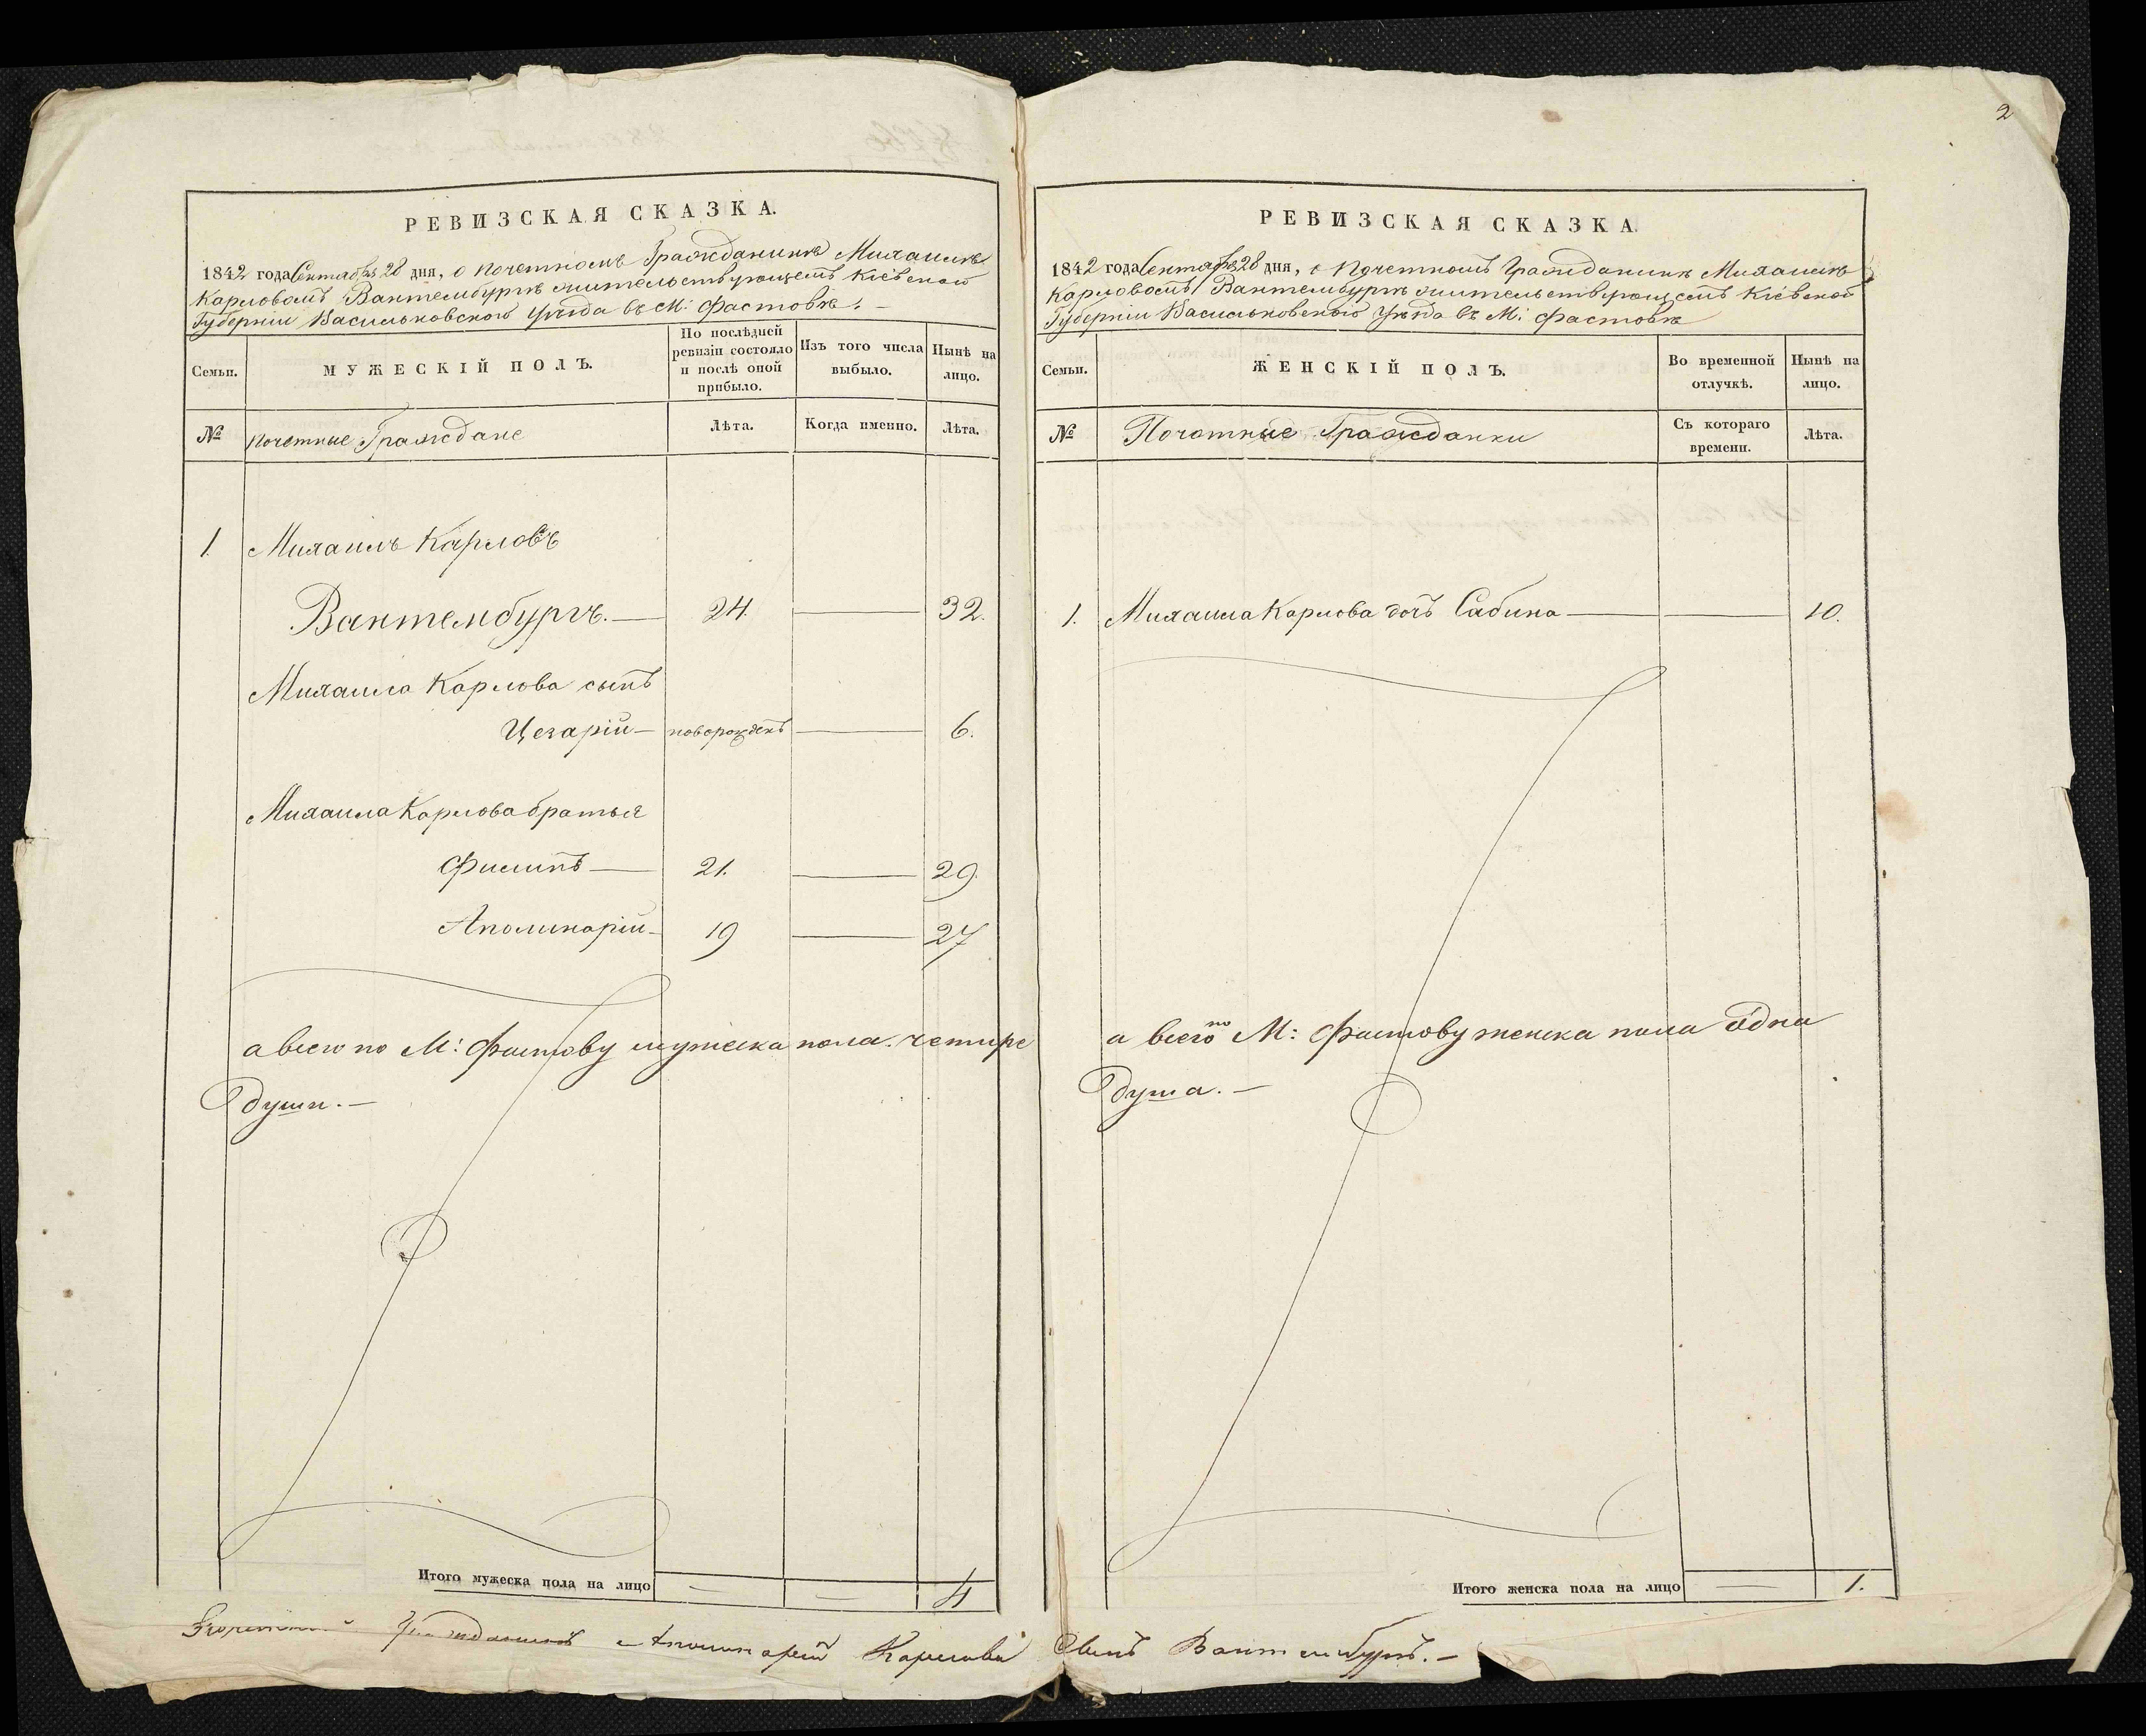 2
РЕВИЗСКАЯ СКАЗКА.
1842 года Сентября 28 дня, о почетномъ Гражданинѣ Михаилѣ
Карловомъ Вантембургѣ жительствующемъ Кіевской
Губерніи Васильковского Уѣзда въ М: Фастовѣ.—
Семьи.
МУЖЕСКІЙ ПОЛЪ.
По послѣдней
ревизіи состояло
и послѣ оной
прибыло.
Изъ того числа
выбыло.
Нынѣ на
лицо.
№
почетные Граждане
Лѣта.
Когда именно.
Лѣта.
1. Михаилъ Карловъ
Вантембургъ.— 24. — 32.
Михаила Карлова сынъ
Цезарій— новорожденъ — 6.
Михаила Карлова братья
Филипъ— 21. — 29.
Аполинарій— 19 — 27
а всего по М: Фастову мужеска пола. четире
души.—
Итого мужеска пола на лицо — — 4
РЕВИЗСКАЯ СКАЗКА.
1842 года Сентября 28 дня, о Почетномъ Гражданинѣ Михаилѣ
Карловомъ Вантембургѣ жительствующемъ Кіевской
Губерніи Васильковского Уѣзда въ М: Фастовѣ
Семьи.
ЖЕНСКІЙ ПОЛЪ.
Во временной
отлучкѣ.
Нынѣ на
лицо.
№
Почотные Гражданки
Съ котораго
времени.
Лѣта.
1. Михаила Карлова дочъ Сабина — — 10.
а всего по М: Фастову женска пола одна
душа.—
Итого женска пола на лицо — 1.
Почетный Гражданинъ Аполинарій Карловъ Сынъ Вантембургъ.—